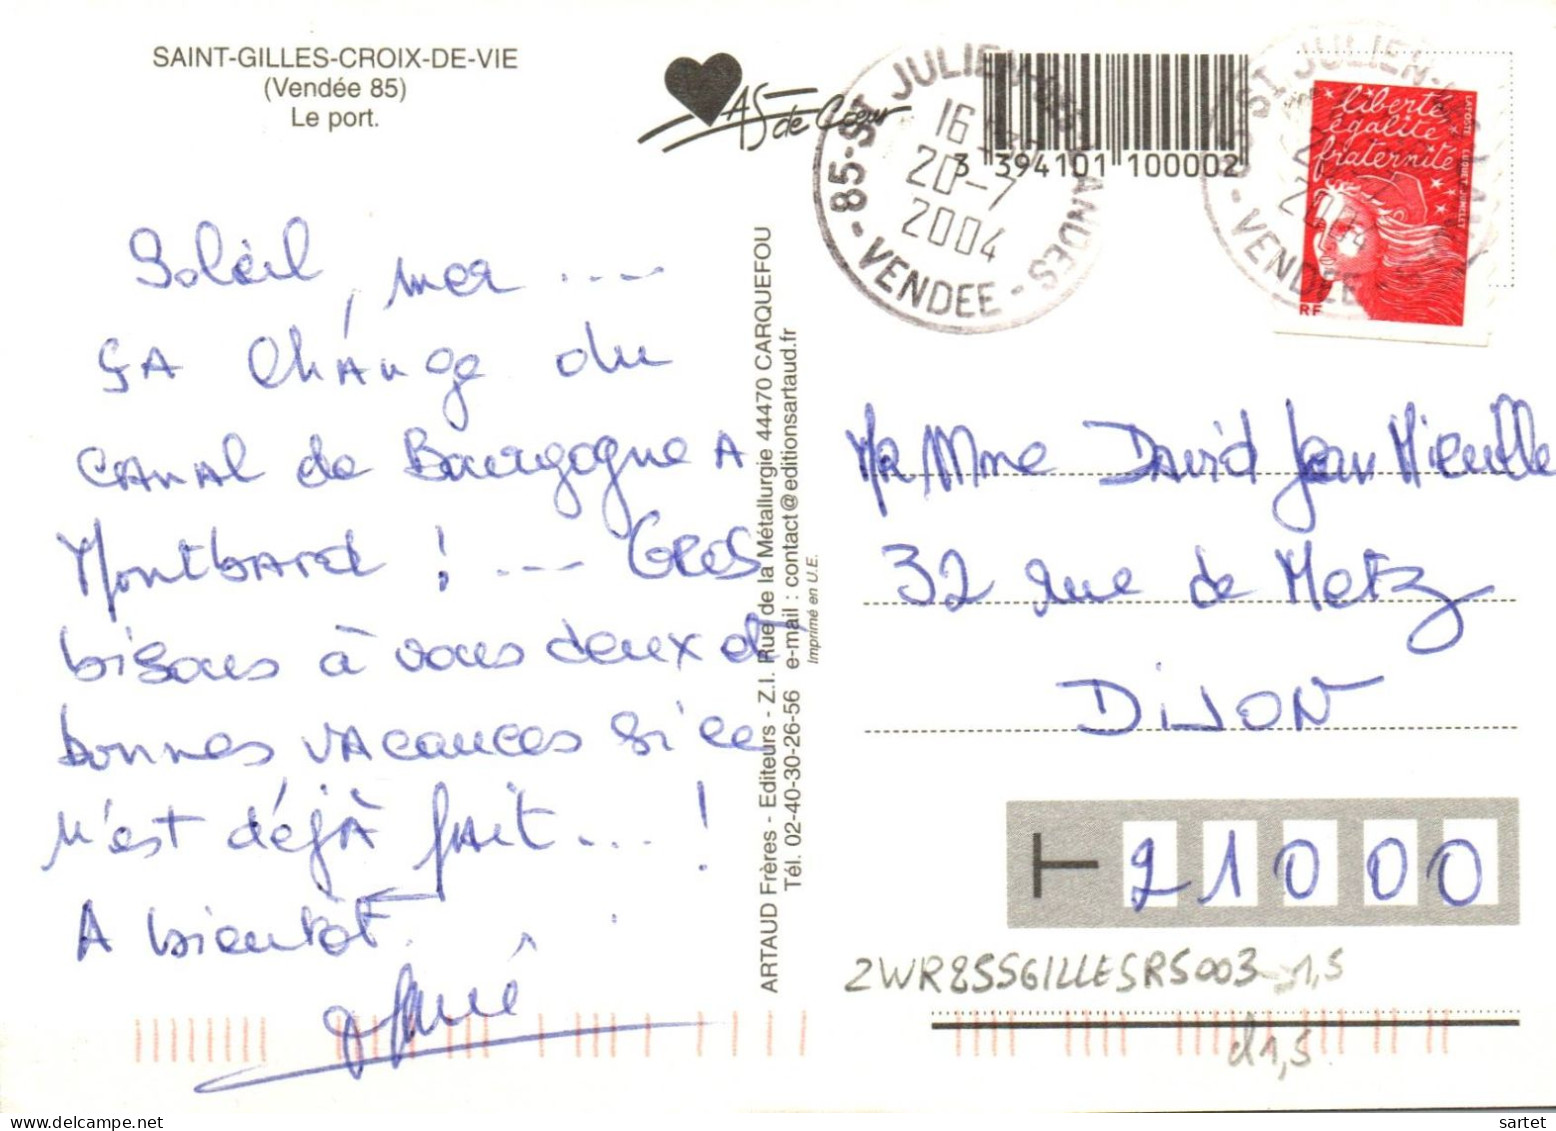 SAINT-GILLES-CROIX-DE-VIE
(Vendée 85)
Le port.
AS de Cœur
3 394101 100002
85-ST JULIEN-DES-LANDES
16
20-7
2004
- VENDEE -
liberté
égalité
fraternité
LA POSTE
RF
Soleil, mer ....
ça change du
canal de Bourgogne A
Montbard ! ... Gros
bisous à vous deux et
bonnes vacances si ce
n'est déjà fait.... !
A bientôt.
ARTAUD Frères - Editeurs - Z.I. Rue de la Métallurgie 44470 CARQUEFOU
Tél. 02-40-30-26-56 e-mail : contact@editionsartaud.fr
Imprimé en U.E.
Mr Mme David Jean
32 rue de Metz
DIJON
21000
ZWR85SGILLESRS003-1,5
d1,5
sartet